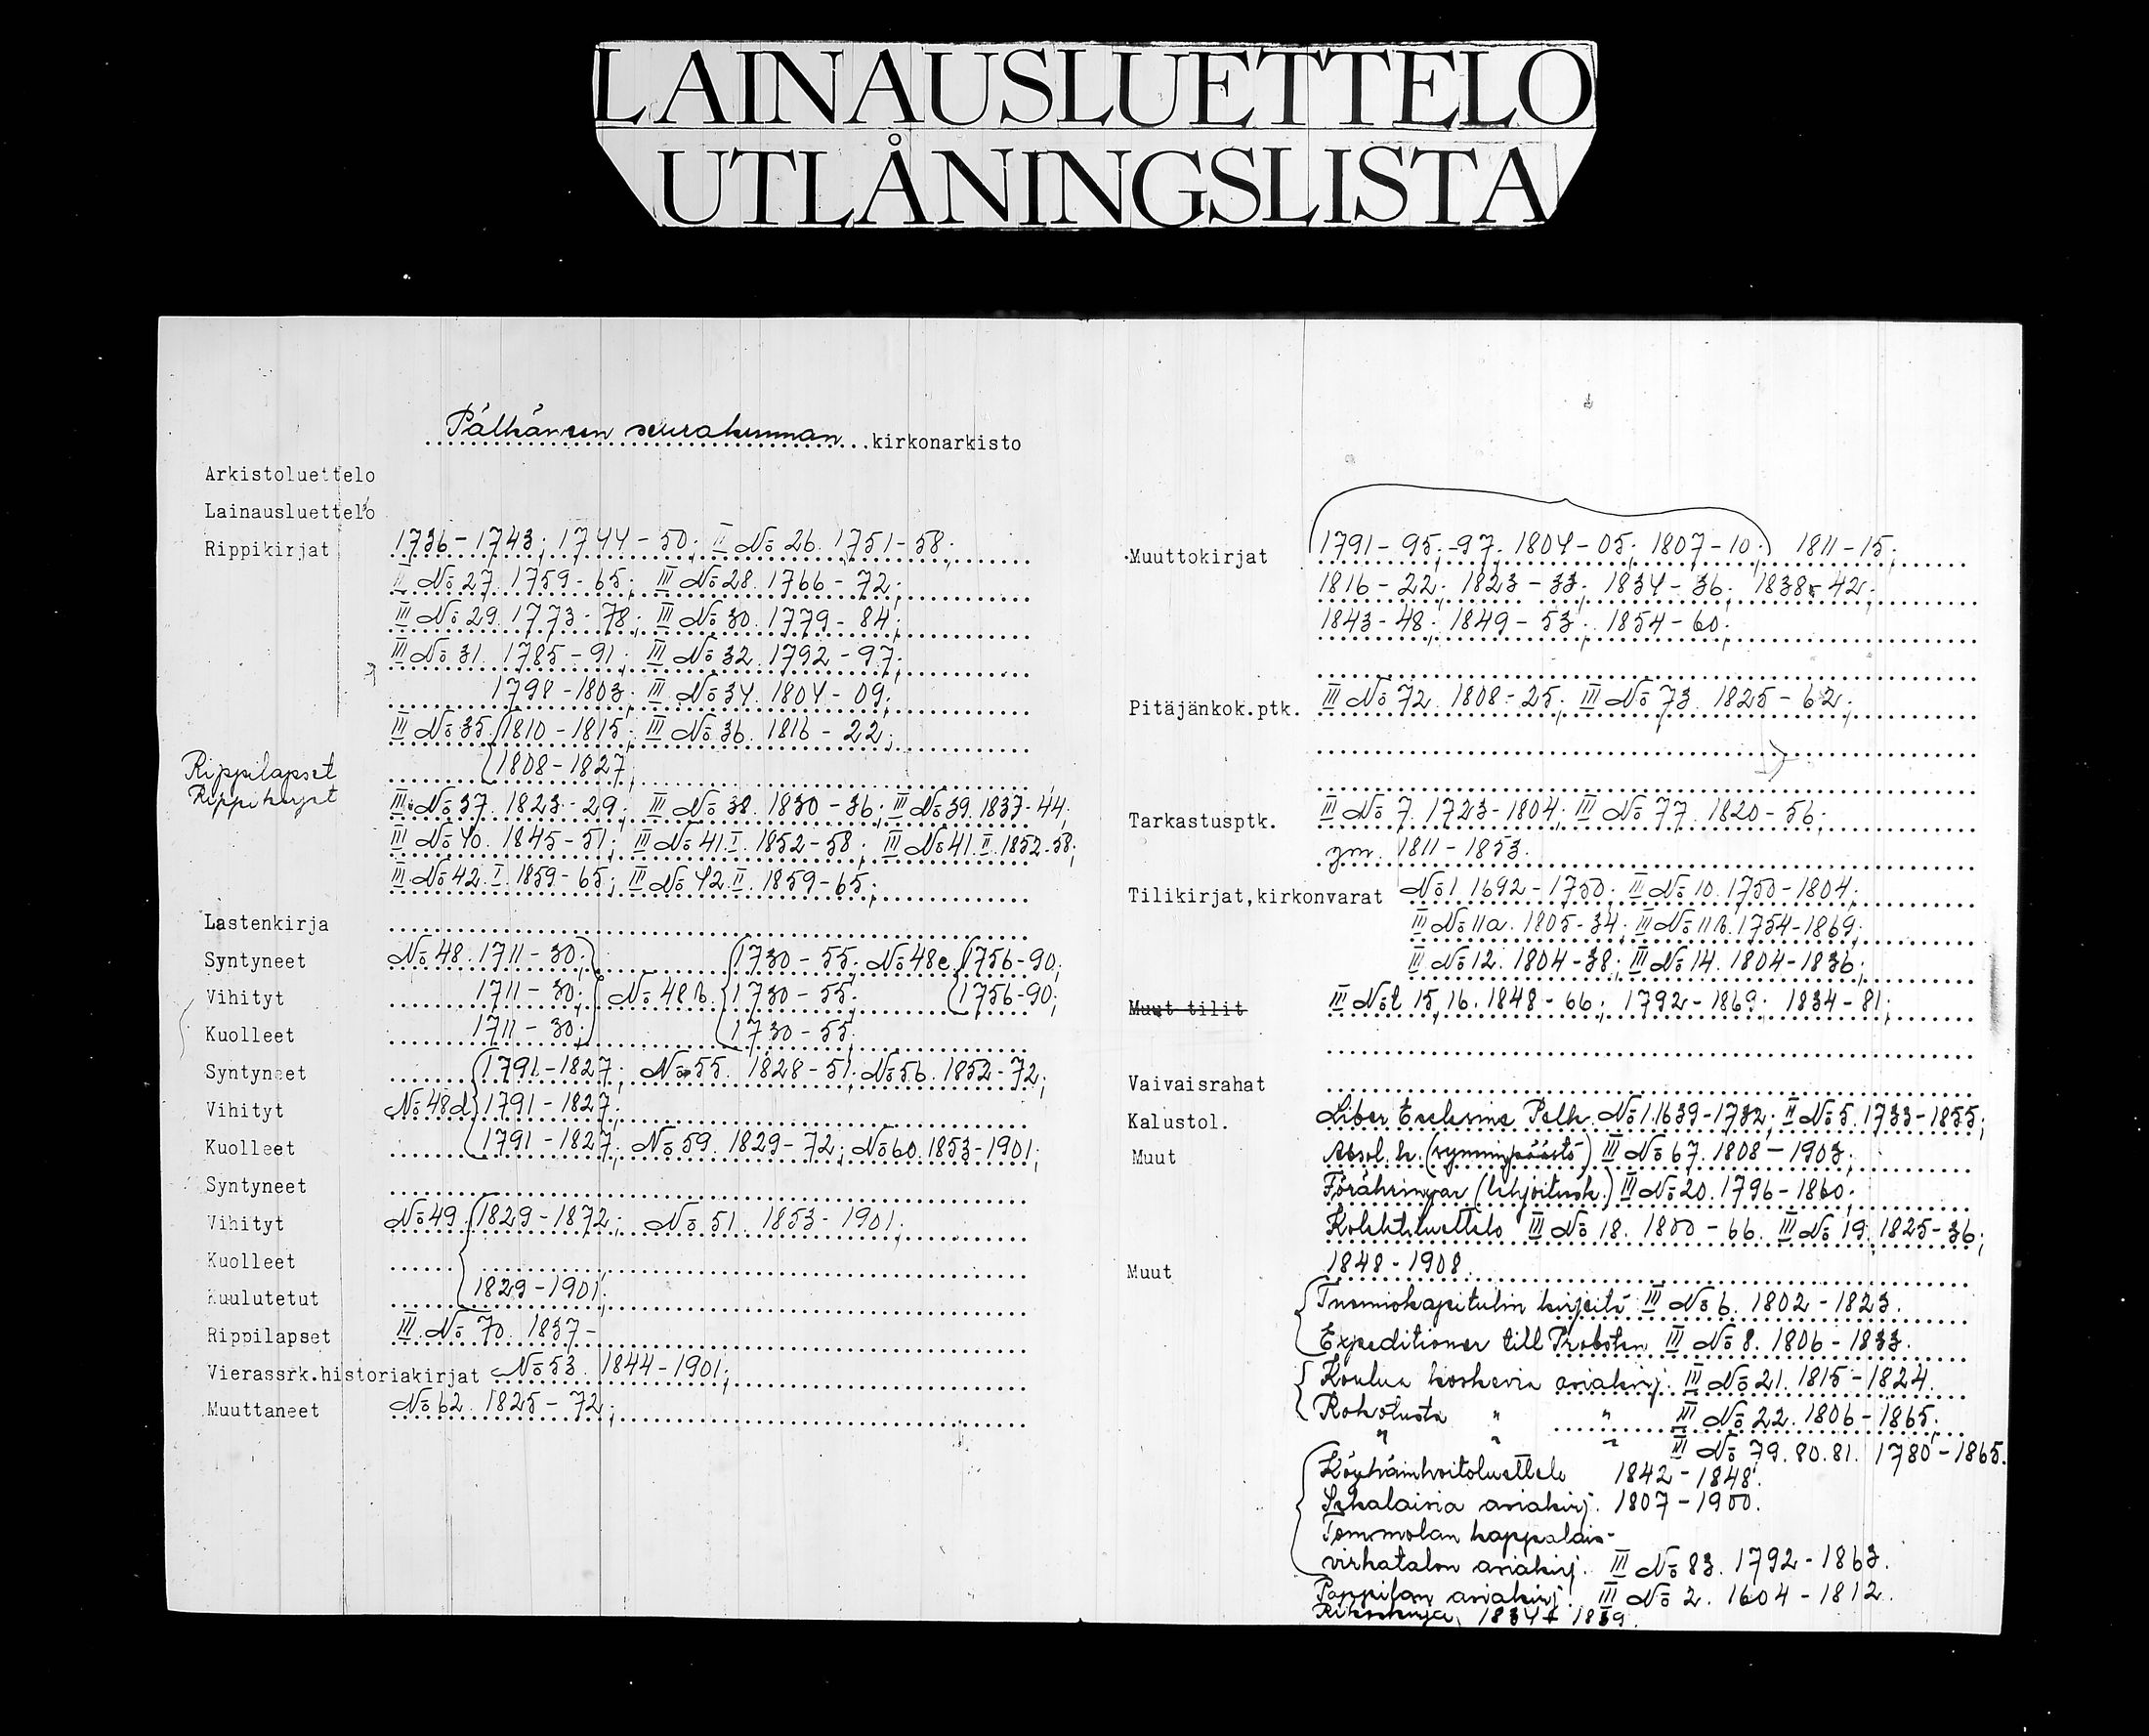 LAINAUSLUETTELO
UTLÅNINGSLISTA
Pälkäneen seurakunnan kirkonarkisto
Arkistoluettelo
Lainausluettelo
Rippikirjat 1736-1743; 1744-50; II No 26. 1751-58;
II No 27. 1759-65; III No 28. 1766-72;
III No 29. 1773-78; III No 30. 1779-84;
III No 31. 1785-91; III No 32. 1792-97;
1798-1803; III No 34. 1804-09;
III No 35. 1810-1815; III No 36. 1816-22;
Rippilapset 1808-1827;
Rippikirjat III No 37. 1823-29; III No 38. 1830-36; III No 39. 1837-44;
III No 40. 1845-51; III No 41.I. 1852-58; III No 41.II. 1852-58;
III No 42.I. 1859-65; III No 42.II. 1859-65;
Lastenkirja
Syntyneet No 48. 1711-30; 1730-55; No 48c 1756-90;
Vihityt 1711-30; No 48b. 1730-55; 1756-90;
Kuolleet 1711-30; 1730-55;
Syntyneet 1791-1827; No 55. 1828-51; No 56. 1852-72;
Vihityt No 48d 1791-1827;
Kuolleet 1791-1827; No 59. 1829-72; No 60. 1853-1901;
Syntyneet
Vihityt No 49. 1829-1872; No 51. 1853-1901;
Kuolleet
Kuulutetut 1829-1901;
Rippilapset III No 70. 1837-
Vierassrk.historiakirjat No 53. 1844-1901;
Muuttaneet No 62. 1825-72;
Muuttokirjat 1791-95; -97. 1804-05; 1807-10; 1811-15;
1816-22; 1823-33; 1834-36; 1838-42;
1843-48; 1849-53; 1854-60;
Pitäjänkok.ptk. III No 72. 1808-25; III No 73. 1825-62;
Tarkastusptk. II No 7. 1723-1804; III No 77. 1820-56;
ym. 1811-1853.
Tilikirjat,kirkonvarat No 1. 1692-1750; II No 10. 1750-1804;
III No 11a. 1805-34; III No 11b. 1754-1869;
II No 12. 1804-38; III No 14. 1804-1836;
Muut tilit III No:t 15,16. 1848-66; 1792-1869; 1834-81;
Vaivaisrahat
Kalustol. Liber Ecclesiae Pelk. No 1. 1639-1732; II No 5. 1733-1855;
Muut Absol. k. (synninpäästö) III No 67. 1808-1903;
Föräringar (lahjoitusk.) III No 20. 1796-1860;
Kolehtiluettelo III No 18. 1800-66. III No 19. 1825-36;
Muut 1848-1908.
Tuomiokapitulin kirjeitä III No 6. 1802-1823.
Expeditioner till Probsten III No 8. 1806-1833.
Koulua koskevia asiakirj. III No 21. 1815-1824.
Rokotusta " " III No 22. 1806-1865.
" " " III No 79. 80. 81. 1780-1865.
Köyhäinhoitoluettelo 1842-1848.
Sekalaisia asiakirj. 1807-1900.
Tommolan kappalais-
virkatalon asiakirj. III No 83. 1792-1863.
Pappilan asiakirj. III No 2. 1604-1812.
1834 1859.